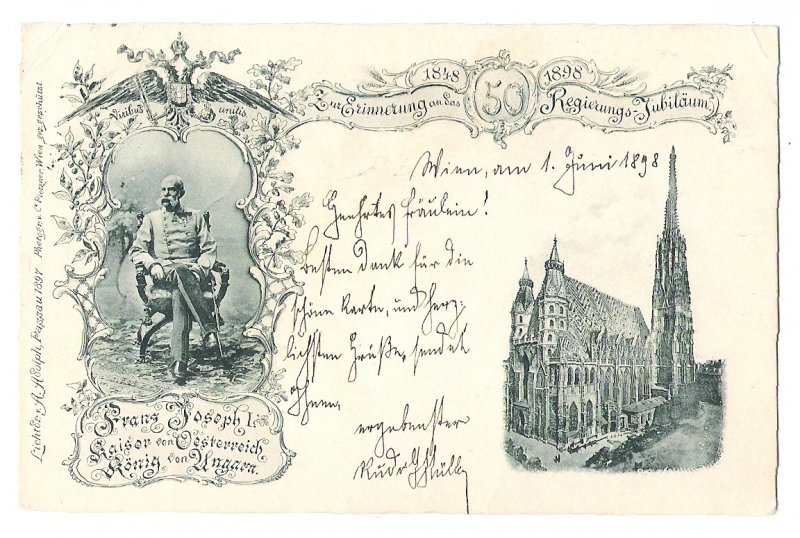 Viribus unitis
1848 50 1898
Zur Erinnerung an das Regierungs-Jubiläum
Wien, am 1. Juni 1898
Geehrtes Fräulein!
Besten Dank für die
schöne Karte, und herz-
lichsten Grüße, sendet
Ihnen
ergebenster
Franz Joseph I.
Kaiser von Oesterreich
König von Ungarn.
Lichtdr. v. A. Adolph, Passau 1897 Photogr. v. C. Pietzner Wien, ges. geschützt.